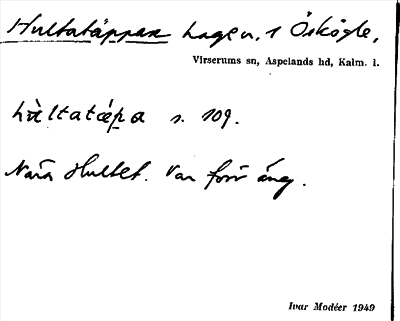 Hultatäppan hage n. 1 Öskögle,
Virserums sn, Aspelands hd, Kalm. l.
hùltatæp̲a s. 109.
Nära Hultet. Var förr äng.
Ivar Modéer 1949